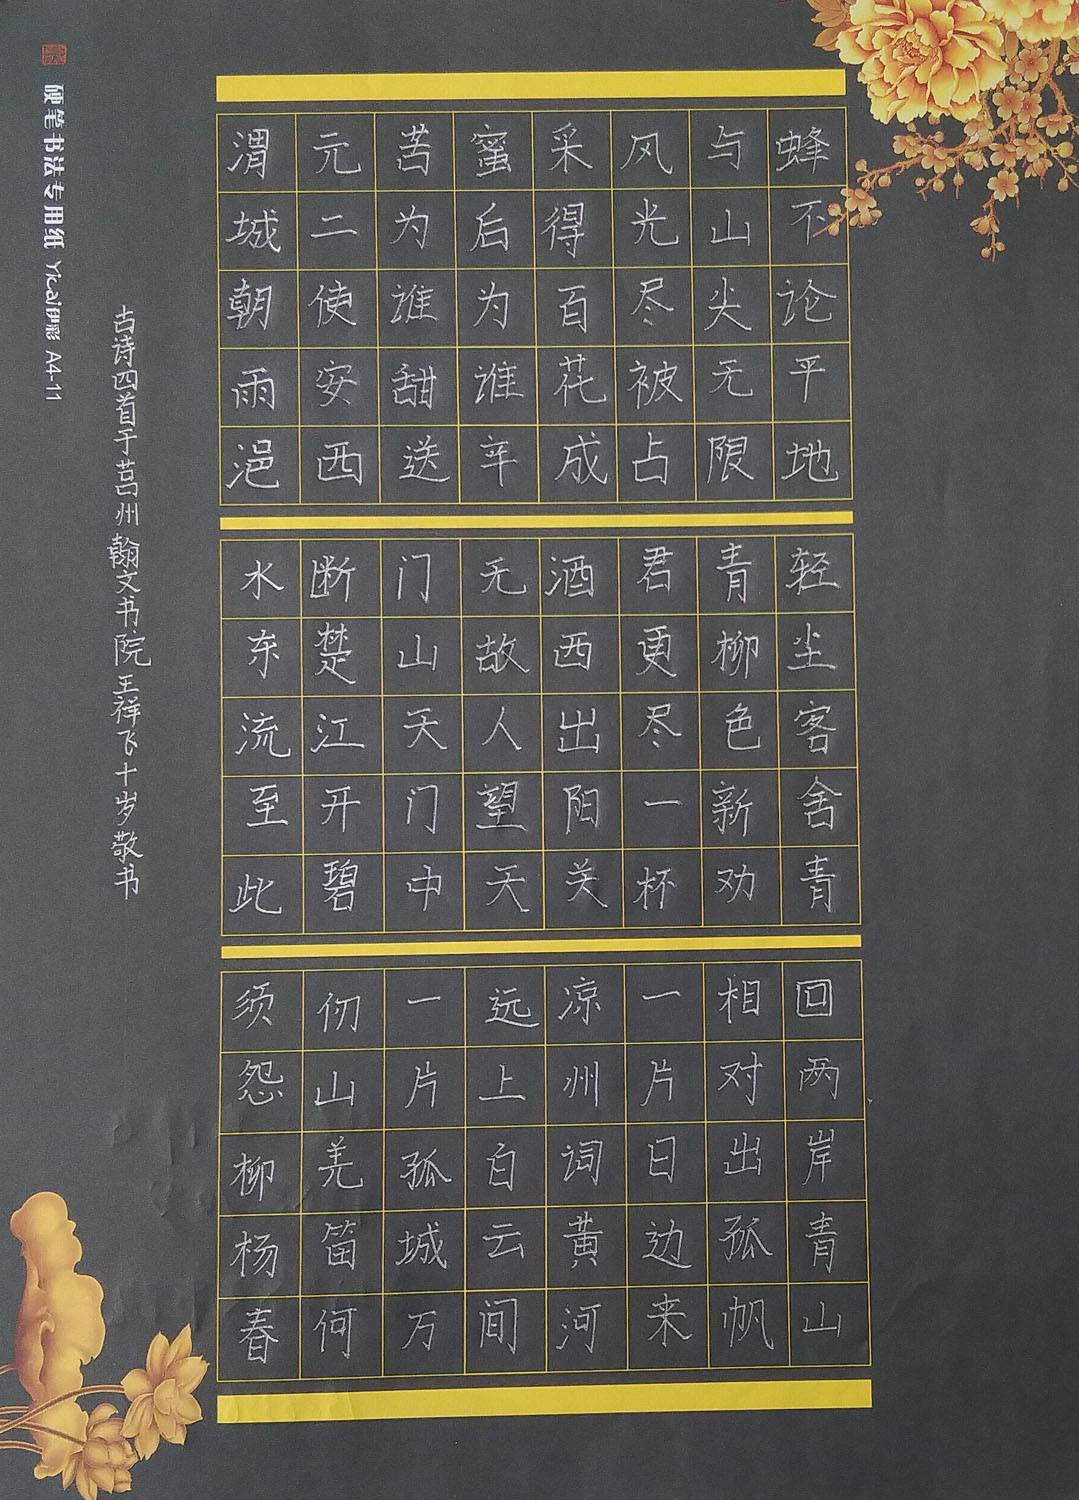 蜂不论平地
与山尖无限
风光尽被占
采得百花成
蜜后为谁辛
苦为谁甜送
元二使安西
渭城朝雨浥
轻尘客舍青
青柳色新劝
君更尽一杯
酒西出阳关
无故人望天
门山天门中
断楚江开碧
水东流至此
回两岸青山
相对出孤帆
一片日边来
凉州词黄河
远上白云间
一片孤城万
仞山羌笛何
须怨柳杨春
古诗四首于莒州翰文书院王祥飞十岁敬书
硬笔书法专用纸 Yicai伊彩 A4-11